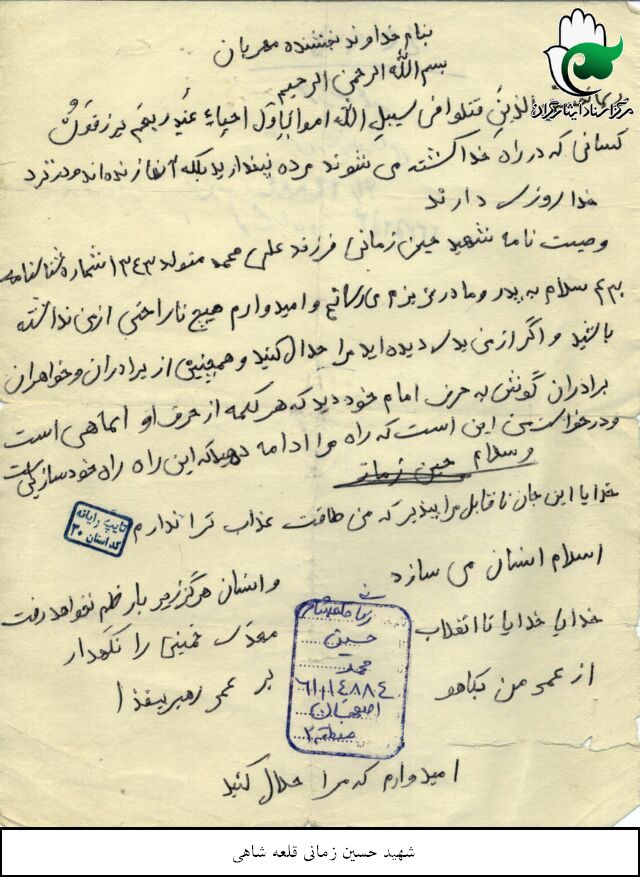 بنام خداوند بخشنده مهربان
بسم الله الرحمن الرحیم
مرکز اسناد ایثارگران
الذین قتلوا فی سبیل الله امواتا بل احیاءٌ عند ربهم یرزقونٌ
کسانی که در راه خدا کشته می شوند مرده نپندارید بلکه آنها زنده اند و در نزد
خدا روزی دارند
وصیت نامه شهید حسین زمانی فرزند علی محمد متولد ۱۳۴۳ شماره شناسنامه
سلام به پدر و مادر عزیزم می رسانم و امیدوارم هیچ ناراحتی از من نداشته
باشید و اگر از من بدی دیده اید مرا حلال کنید و همچنین از برادران و خواهران
برادران گوش به حرف امام خود دید که هر کلمه از حرف او الهامی است
و درخواست من این است که راه مرا ادامه دهید که این راه راه خودسازی است
وسلام حسین زمانی
خدایا این جان ناقابل مرا بپذیر که من طاقت عذاب ترا ندارم
تایپ رایانه
کد استان ۲۰
اسلام انسان می سازد و انسان هرگز زیر بار ظلم نخواهد رفت
خدایا خدایا تا انقلاب مهدی خمینی را نگهدار
از عمر من بکاهو بر عمر رهبر بیفزا
زمانی قلعه شاهی
حسین
محمد
۶۱۱۴۸۸۴
اصفهان
منطقه ۲
امیدوارم که مرا حلال کنید
شهید حسین زمانی قلعه شاهی